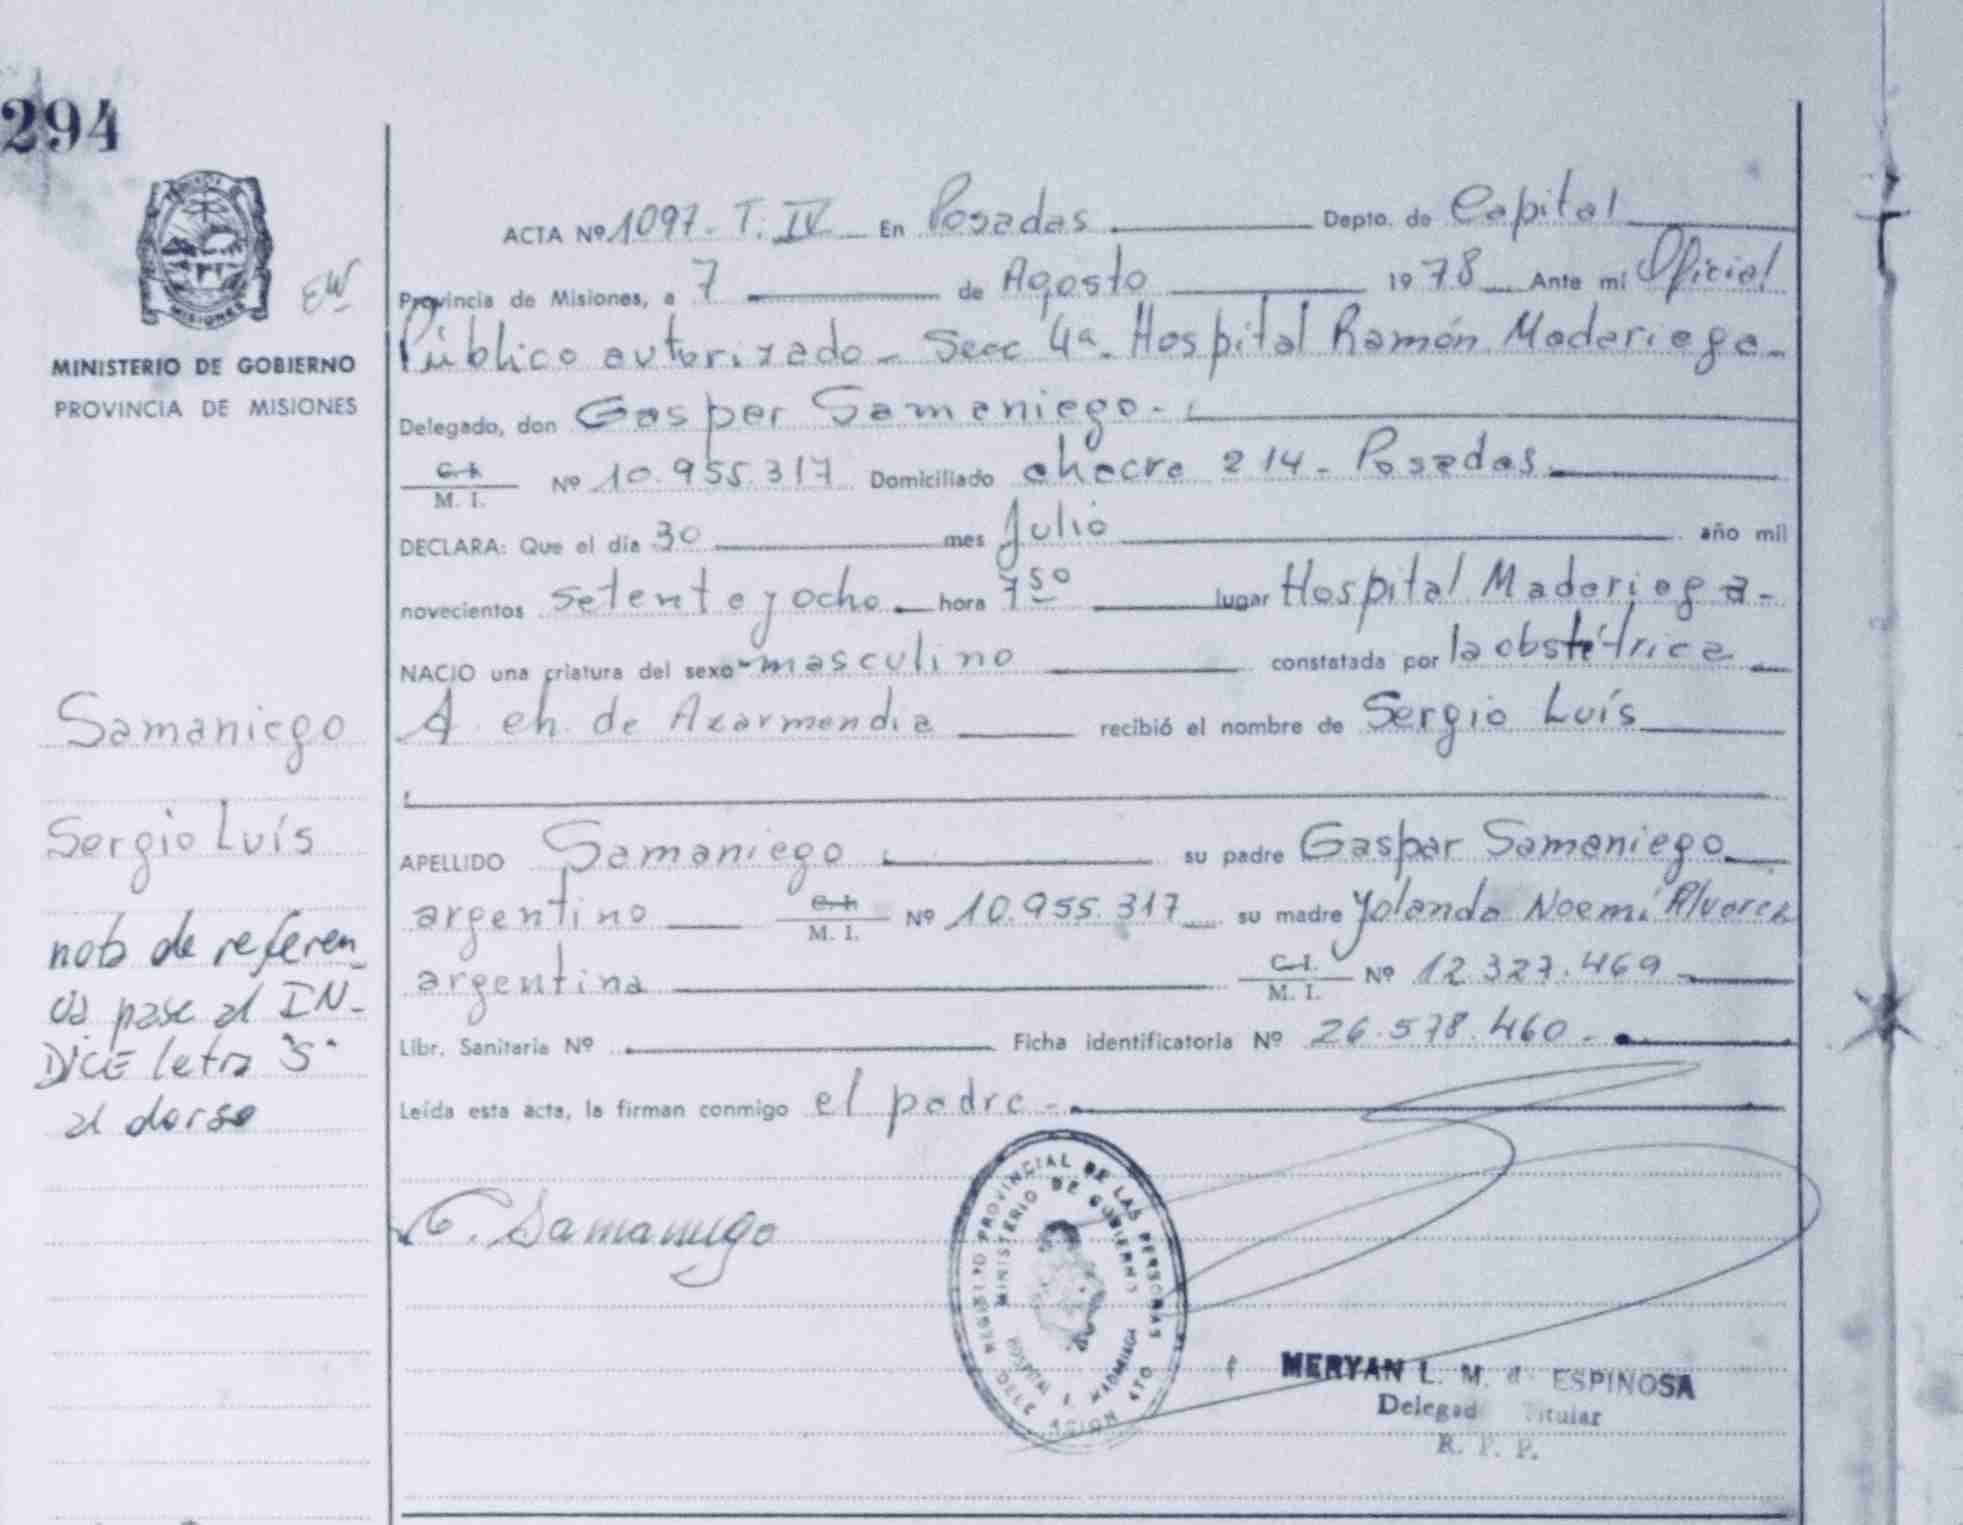 294
MISIONES
EW
MINISTERIO DE GOBIERNO
PROVINCIA DE MISIONES
ACTA Nº 1097 - T. IV En Posadas Depto. de Capital
Provincia de Misiones, a 7 de Agosto 1978 Ante mi Oficial
Público autorizado - Secc 4ª. Hospital Ramón Maderiaga -
Delegado, don Gaspar Samaniego -
C. I. M. I. Nº 10.955.317 Domiciliado chacra 214 - Posadas
DECLARA: Que el día 30 mes Julio año mil
novecientos setenta y ocho hora 7 50 lugar Hospital Maderiaga -
NACIO una criatura del sexo masculino constatada por la obstétrica
A. Ch. de Azarmendia recibió el nombre de Sergio Luís
APELLIDO Samaniego su padre Gaspar Samaniego
argentino C. I. M. I. Nº 10.955.317 su madre Yolanda Noemí Alvarez
argentina C. I. M. I. Nº 12.327.469
Libr. Sanitaria Nº Ficha identificatoria Nº 26.578.460 -
Leída esta acta, la firman conmigo el padre -
Samaniego
Sergio Luís
nota de referen
cia pase al IN-
DICE letra "S"
al dorso
G. Samaniego
REGISTRO PROVINCIAL DE LAS PERSONAS
MINISTERIO DE GOBIERNO
MERYAN L. M. d ESPINOSA
Delegad Titular
R. P. P.